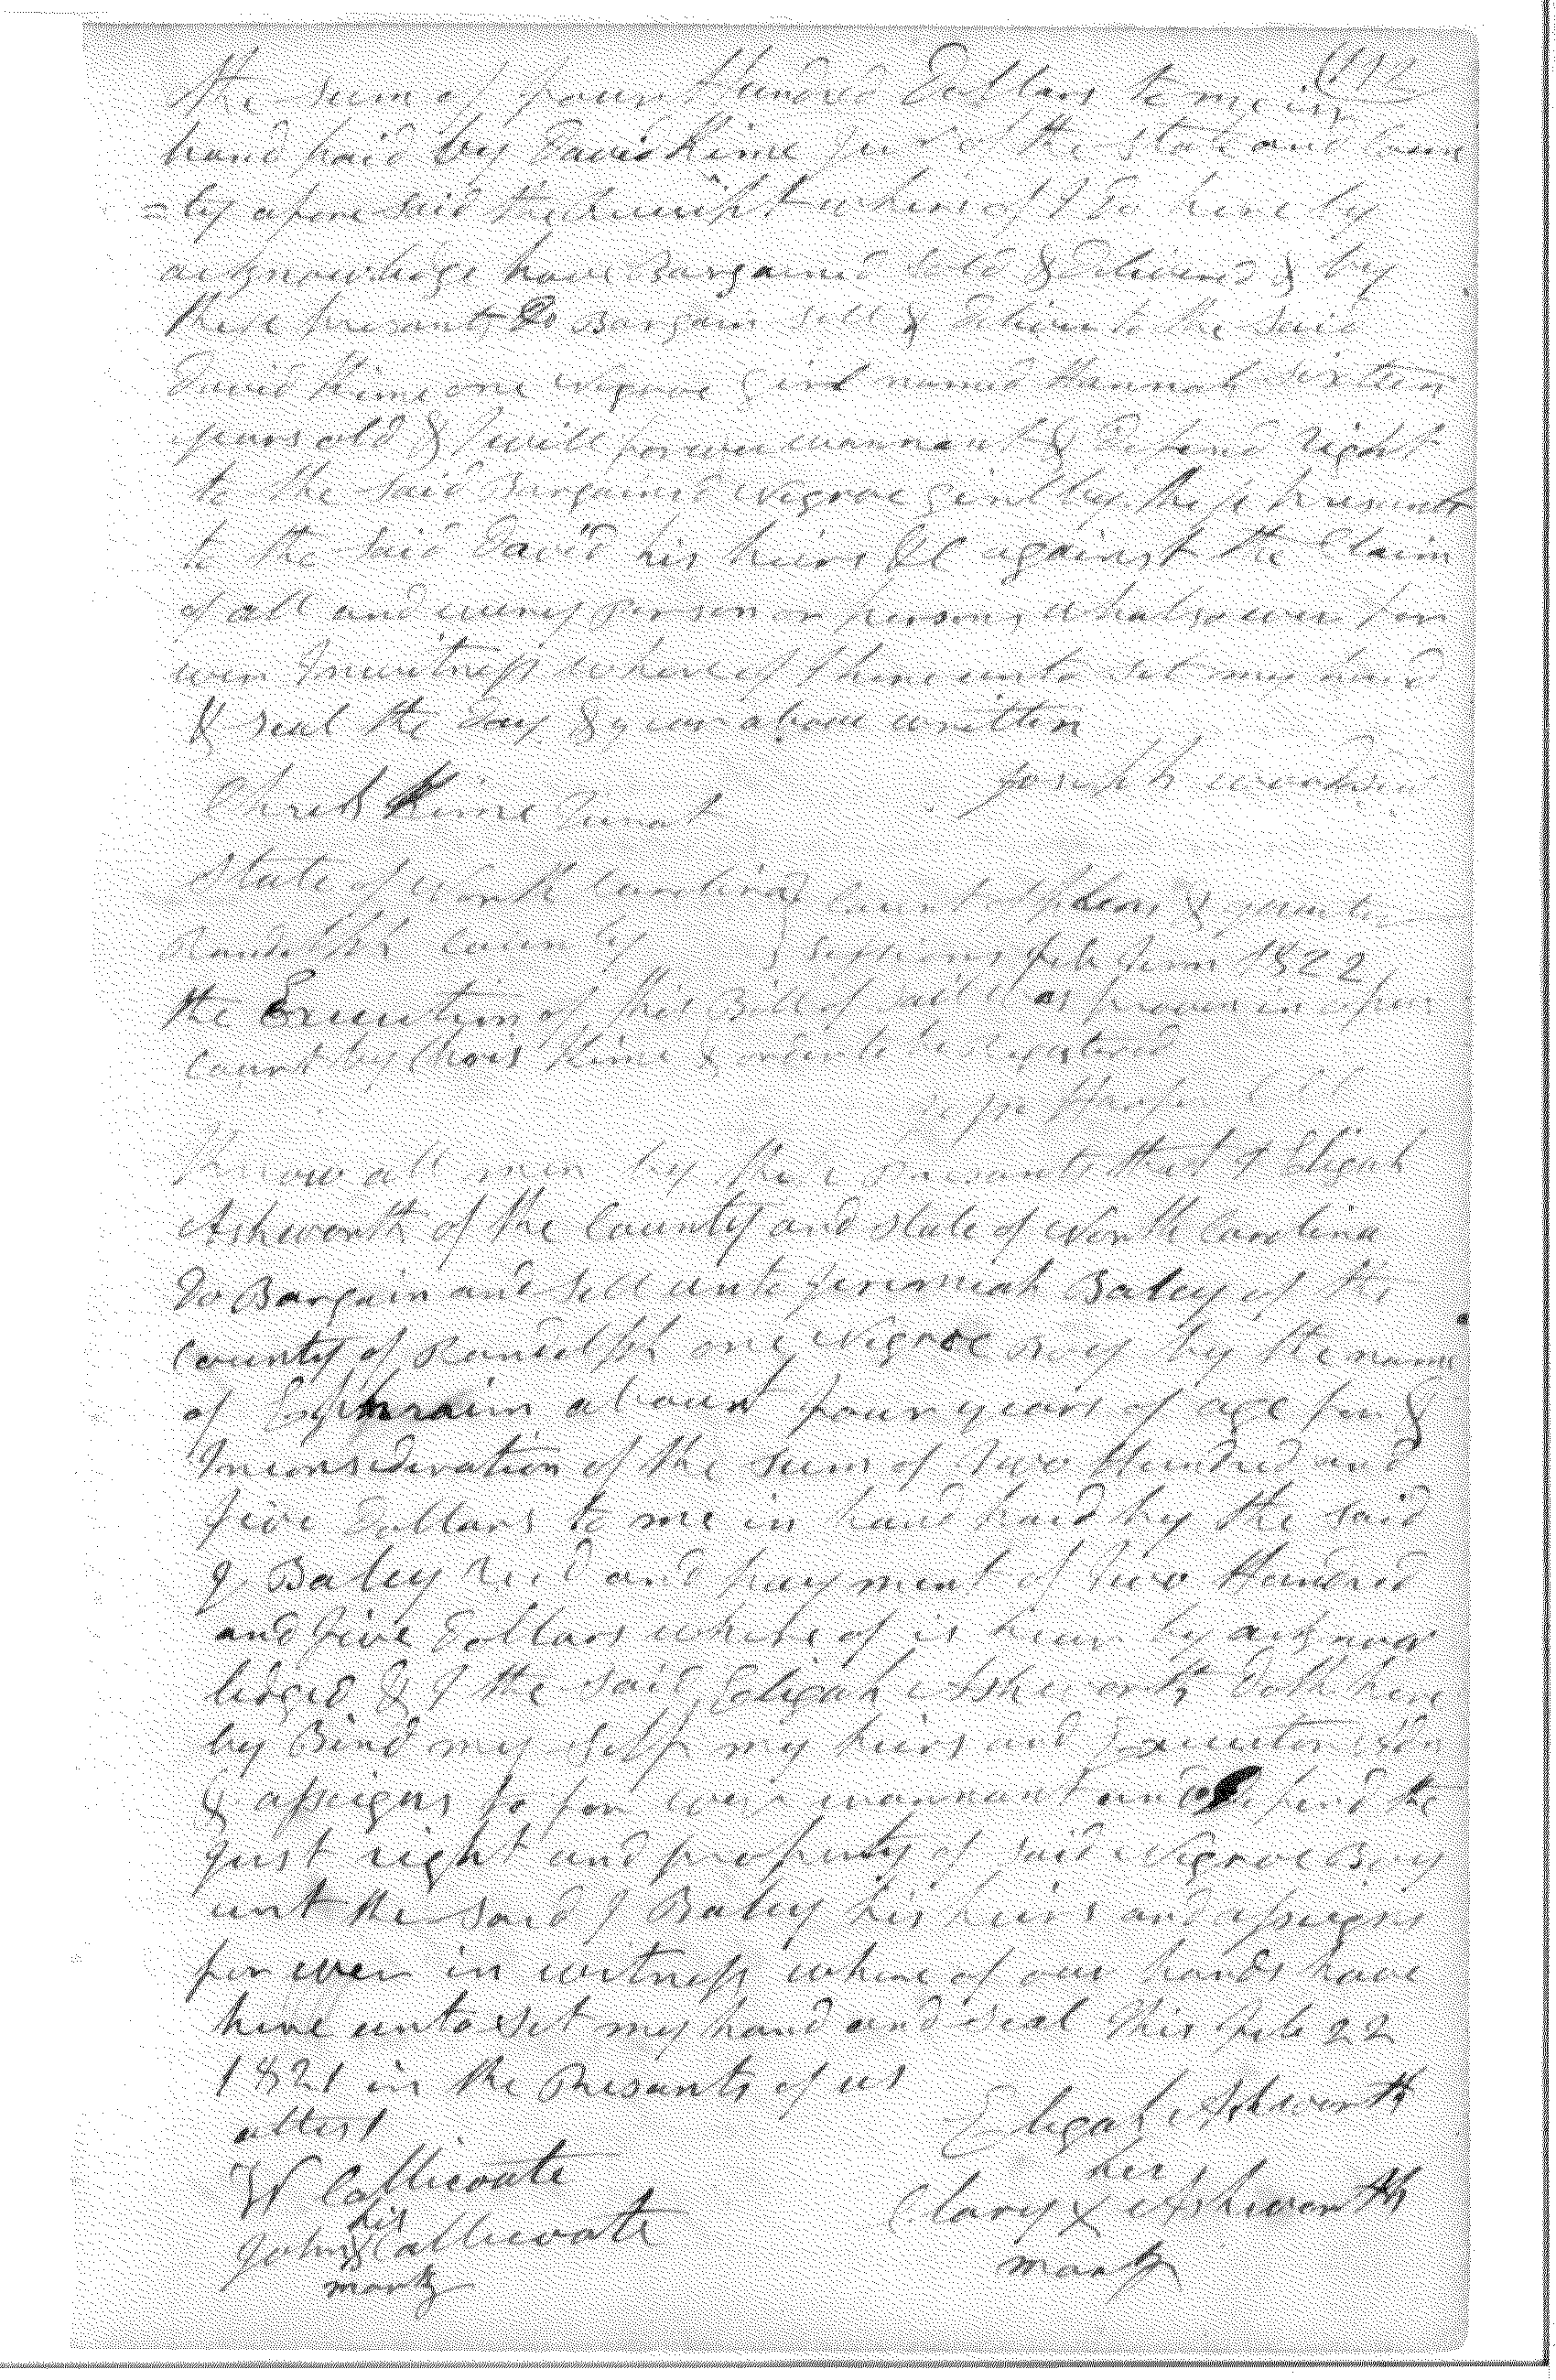 (112
the sum of four Hundred Dollars to me in
hand paid by David Kime Jur of the State and Coun
=ty afore said the Receipt where of I Do here by
acknowledge have Bargained Sold & Delivered & by
these presants Do Bargain Sell & Deliver to the said
David Kime one Negroe Girl named Hannah sixteen
years old & I will forever warrant & Defend right
to the said Bargained Negroe girl by these presents
to the said David his heirs &C against the Claim
of all and every person or persons whatsoever for
ever In witness where of I here unto set my hand
& seal the Day & year above written
Joseph
Chris Kime Jurat
State of North Carolina } Court of pleas & quarter
Randolph County } sessions feb Term 1822
the Execution of this Bill of as proven in open
Court by Chris Kime & order to be Registered
Harper
Know all men by these presants that I Eligah
Ashworth of the County and State of North Carolina
Do Bargain and Sell unto Jeremiah Baley of the
County of Randolph one Negroe Boy by the name
of Ephraim about four years of age for &
In consideration of the sum of Two Hundred and
five Dollars to me in hand paid by the said
J Baley and payment of Two Hundred
and five Dollars where of is here by acknow
ledged & I the said Eligah Ashworth Doth here
by Bind my self my heirs and Executor
& assigns to for ever warrant and Defend the
just right and property of said Negroe Boy
unt the said J Baley his heirs and assigns
for ever in witness where of our hands have
here unto set my hand and seal this Feb 22
1821 in the Presants of us
attest
Eligah Ashworth
W Callicoate
her
Clary X Ashworth
mark
his
John X Callicoate
mark